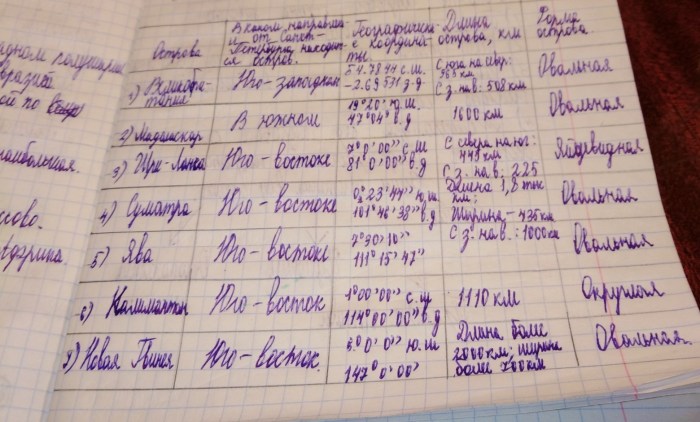 адном полушарии
Евразии
ой по
наибольшая.
ссово.
Африка.
Острова
В каком направле-
и от Санкт-
Петербурга находит-
ся остров.
Географически
е координа-
ты.
Длина
острова, км
Форма
острова.
1) Великобри-
тания
Юго-западном
54.7844 с.ш.
-2.69531 з.д.
С юга на север:
966 км
С з. на в: 508 км
Овальная
2) Мадагаскар
В южном
19°20' ю.ш
47°04' в.д
1600 км
Овальная
3) Шри-Ланка
Юго-востоке
7°0'00" с.ш
81°0'00" в.д
С севера на юг:
445 км
С з. на в: 225
Яйцевидная
4) Суматра
Юго-востоке
0°23'44" ю.ш
101°46'38" в.д
Длина 1,8 тыс
км;
Ширина - 435 км
Овальная
5) Ява
Юго-востоке
7°30'10"
111°15'47"
С з. на в.: 1000 км
Овальная
6) Калимантан
Юго-восток
1°00'00" с.ш
114°00'00" в.д
1110 км
Округлая
7) Новая Гвинея
Юго-восток.
5°0'0" ю.ш
147°0'00"
Длина более
2000 км; ширина
более 700 км
Овальная.